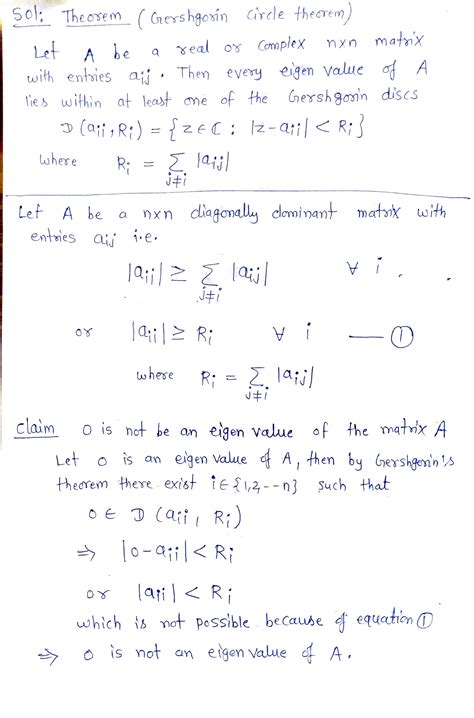 Sol: Theorem (Gershgorin Circle theorem)
Let A be a real or complex nxn matrix
with entries aij. Then every eigen value of A
lies within at least one of the Gershgorin discs
D(aii, Ri) = {z ∈ ℂ : |z-aii| < Ri}
where Ri = Σ_{j≠i} |aij|
Let A be a nxn diagonally dominant matrix with
entries aij i.e.
|aii| ≥ Σ_{j≠i} |aij| ∀ i.
or |aii| ≥ Ri ∀ i — ①
where Ri = Σ_{j≠i} |aij|
Claim 0 is not be an eigen value of the matrix A
Let 0 is an eigen value of A, then by Gershgorin's
theorem there exist i ∈ {1,2,--n} such that
0 ∈ D(aii, Ri)
⇒ |0-aii| < Ri
or |aii| < Ri
which is not possible because of equation ①
⇒ 0 is not an eigen value of A.